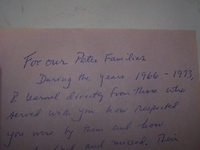 For our Pater Familias
During the years 1966-1973,
I learned directly from those who
served with you how respected
you were by them and how
and